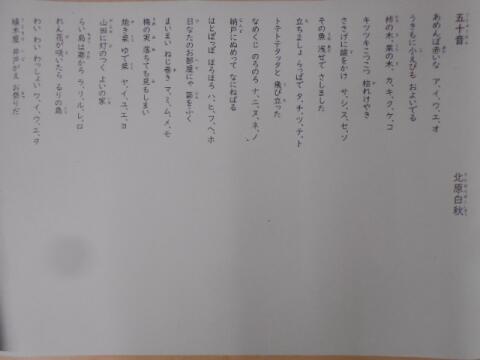 五十音
北原白秋
あめんぼ赤いな ア、イ、ウ、エ、オ
うきもに小えびも およいでる
柿の木、栗の木 カ、キ、ク、ケ、コ
キツツキこつこつ 枯れけやき
ささげに酢をかけ サ、シ、ス、セ、ソ
その魚 浅せで さしました
立ちましょ らっぱで タ、チ、ツ、テ、ト
トテトテタッタと 飛び立った
なめくじ のろのろ ナ、ニ、ヌ、ネ、ノ
納戸にぬめって なにねばる
はとぽっぽ ほろほろ ハ、ヒ、フ、ヘ、ホ
日なたのお部屋にゃ 笛をふく
まいまい ねじ巻き マ、ミ、ム、メ、モ
梅の実 落ちても見もしまい
焼き栗 ゆで栗 ヤ、イ、ユ、エ、ヨ
山田に灯のつく よいの家
らい鳥は寒かろ ラ、リ、ル、レ、ロ
れん花が咲いたら るりの鳥
わい わい わっしょい ワ、イ、ウ、エ、ヲ
植木屋 井戸がえ お祭りだ